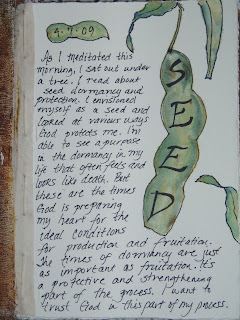 4.7.09
As I meditated this
morning, I sat out under
a tree. I read about
seed dormancy and
protection. I envisioned
myself as a seed and
looked at various ways
God protects me. I'm
able to see a purpose
in the dormancy in my
life that often feels and
looks like death. But
these are the times
God is preparing
my heart for the
ideal conditions
for production and fruitation.
The times of dormancy are just
as important as fruitation. It's
a protective and strengthening
part of the process. I want to
trust God in this part of my process.
SEED